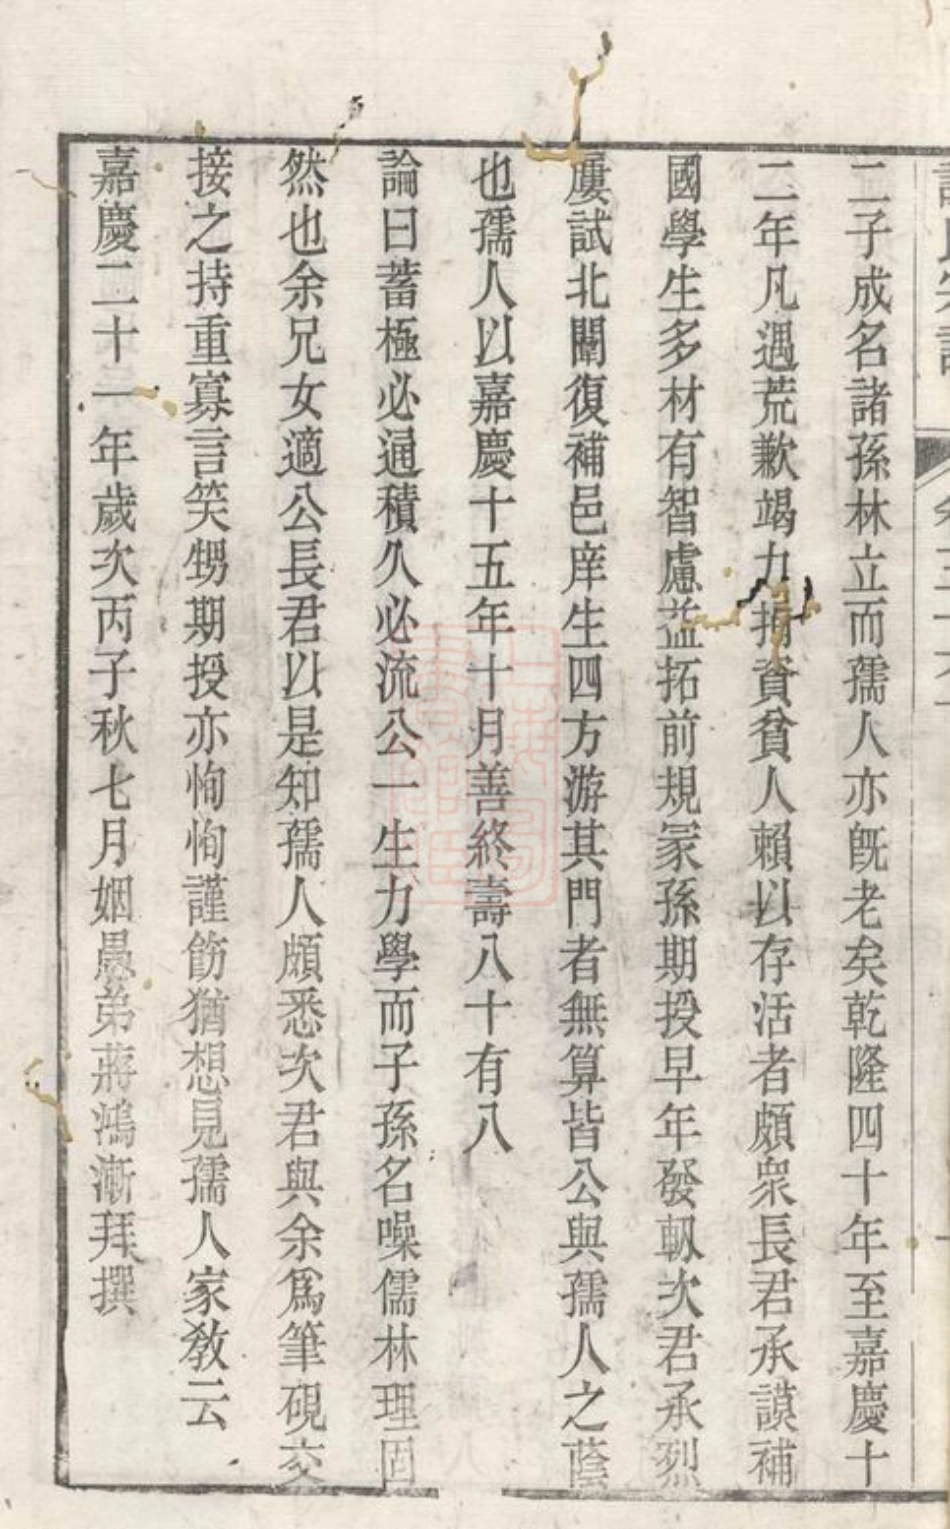 二子成名諸孫林立而孺人亦旣老矣乾隆四十年至嘉慶十
二年凡遇荒歉竭力捐資貧人賴以存活者頗衆長君承謨補
國學生多材有智慮益拓前規冡孫期授早年發軔次君承烈
屢試北闈復補邑庠生四方游其門者無算皆公與孺人之蔭
也孺人以嘉慶十五年十月善終壽八十有八
論曰蓄極必通積久必流公一生力學而子孫名噪儒林理固
然也余兄女適公長君以是知孺人頗悉次君與余爲筆硯交
接之持重寡言笑甥期授亦恂恂謹飭猶想見孺人家教云
嘉慶二十一年歲次丙子秋七月姻愚弟蔣鴻漸拜撰